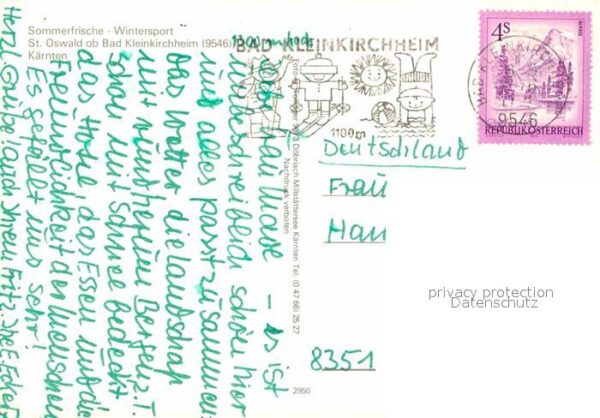 Sommerfrische - Wintersport
St. Oswald ob Bad Kleinkirchheim (9546)
Kärnten
1300 m hoch
BAD KLEINKIRCHHEIM
1100 m
BAD KLEINKIRCH
9546
4S
ALMSEE
REPUBLIK ÖSTERREICH
Döbriach Millstättersee Kärnten Tel. (0 42 46) 25 27
Nachdruck verboten
2960
Liebe Frau
- Es ist
unbeschreiblich schön hier
und alles passt zusammen:
das Wetter, die Landschaft
mit wunderschönen Bergen z. T.
schon mit Schnee bedeckt
das Hotel das Essen und die
Freundlichkeit der Menschen
Es gefällt uns sehr!
Herzl. Grüße! auch Ihrem Fritz. Ihre E.
Deutschland
Frau
Han
8351
privacy protection
Datenschutz